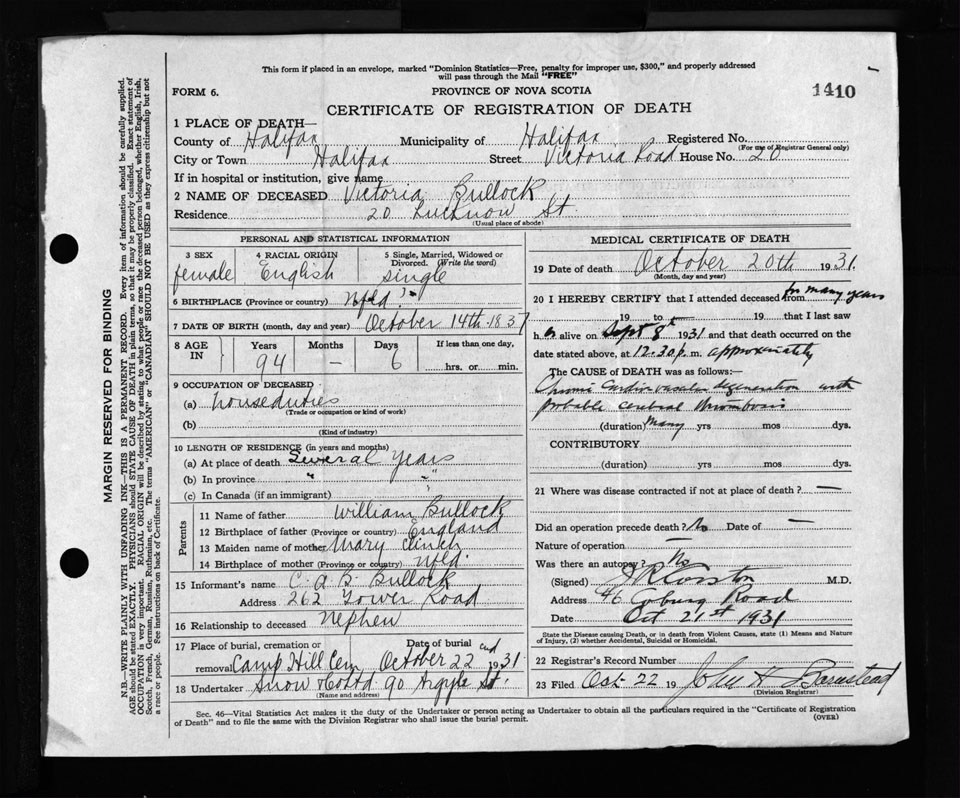 This form if placed in an envelope, marked "Dominion Statistics—Free, penalty for improper use, $300," and properly addressed
will pass through the Mail "FREE"
FORM 6. PROVINCE OF NOVA SCOTIA 1410
CERTIFICATE OF REGISTRATION OF DEATH
1 PLACE OF DEATH—
County of Halifax Municipality of Halifax Registered No.
(For use of Registrar General only)
City or Town Halifax Street Victoria Road House No. 20
If in hospital or institution, give name
2 NAME OF DECEASED Victoria Bullock
Residence 20 Lucknow St.
(Usual place of abode)
PERSONAL AND STATISTICAL INFORMATION
3 SEX 4 RACIAL ORIGIN 5 Single, Married, Widowed or
Divorced. (Write the word)
female English single
6 BIRTHPLACE (Province or country) Nfld.
7 DATE OF BIRTH (month, day and year) October 14th 1837
8 AGE IN Years Months Days If less than one day,
94 — 6 hrs. or min.
9 OCCUPATION OF DECEASED
(a) houseduties
(Trade or occupation or kind of work)
(b)
(Kind of industry)
10 LENGTH OF RESIDENCE (in years and months)
(a) At place of death Several Years
(b) In province " "
(c) In Canada (if an immigrant)
Parents
11 Name of father William Bullock
12 Birthplace of father (Province or country) England
13 Maiden name of mother Mary Clinch
14 Birthplace of mother (Province or country) Nfld.
15 Informant's name C. A. B. Bullock
Address 262 Tower Road
16 Relationship to deceased Nephew
17 Place of burial, cremation or Date of burial
removal Camp Hill Cem October 22nd 1931
18 Undertaker Snow & Co Ltd 90 Argyle St.
(Name and address)
MEDICAL CERTIFICATE OF DEATH
19 Date of death October 20th 1931.
(Month, day and year)
20 I HEREBY CERTIFY that I attended deceased from for many years
19 to 19 that I last saw
h alive on Sept 8th 1931 and that death occurred on the
date stated above, at 12.30 p. m. approximately
The CAUSE of DEATH was as follows:—
Chronic Cardiovascular degeneration with
probable cerebral thrombosis
(duration) Many yrs mos dys.
CONTRIBUTORY
(duration) yrs mos dys.
21 Where was disease contracted if not at place of death? —
Did an operation precede death? No Date of —
Nature of operation —
Was there an autopsy? No
(Signed) M.D.
Address 46 Coburg Road
Date Oct 21st 1931
State the Disease causing Death, or in death from Violent Causes, state (1) Means and Nature
of Injury, (2) whether Accidental, Suicidal or Homicidal.
22 Registrar's Record Number
23 Filed Oct 22 19 John H Barnstead
(Division Registrar)
Sec. 46—Vital Statistics Act makes it the duty of the Undertaker or person acting as Undertaker to obtain all the particulars required in the "Certificate of Registration
of Death" and to file the same with the Division Registrar who shall issue the burial permit.
(OVER)
MARGIN RESERVED FOR BINDING
N.B.—WRITE PLAINLY WITH UNFADING INK—THIS IS A PERMANENT RECORD. Every item of information should be carefully supplied.
AGE should be stated EXACTLY. PHYSICIANS should STATE CAUSE OF DEATH in plain terms, so that it may be properly classified. Exact statement of
OCCUPATION is very important. RACIAL ORIGIN will be described by stating to what people or race the deceased person belonged, whether English, Irish,
Scotch, French, German, Russian, Ruthenian, etc. The terms "AMERICAN" or "CANADIAN" SHOULD NOT BE USED as they express citizenship but not
a race or people. See instructions on back of Certificate.